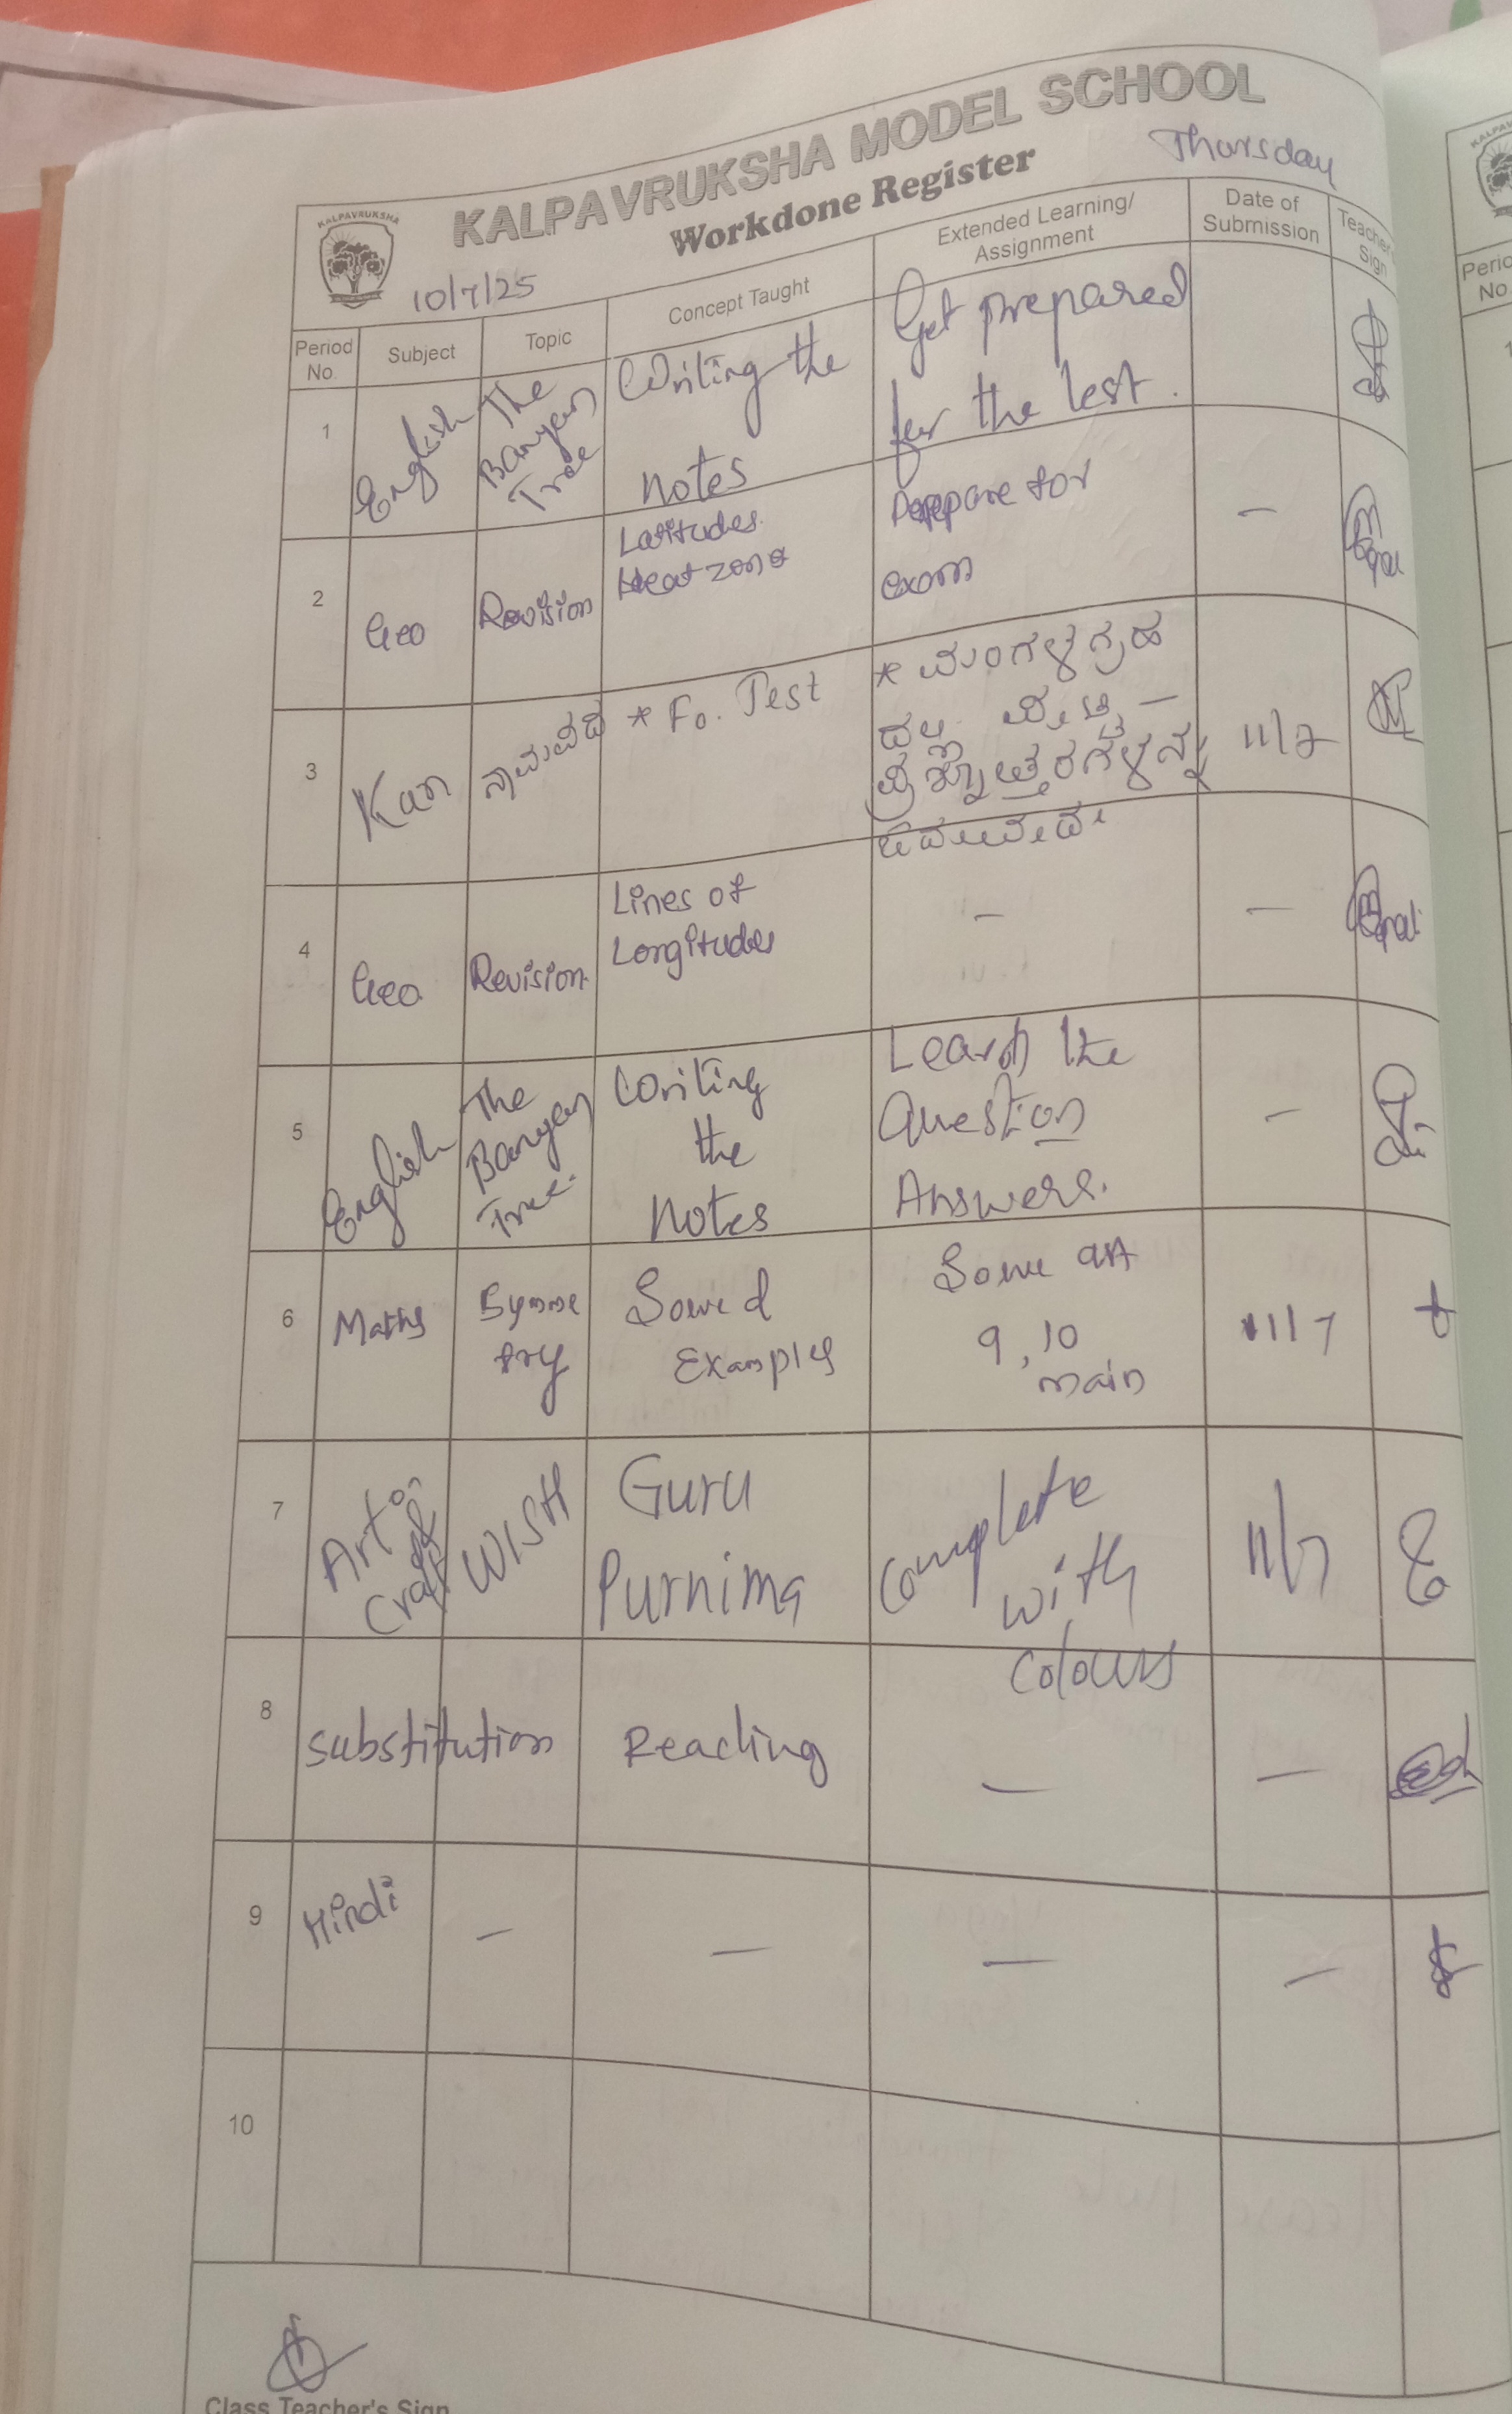 KALPAVRUKSHA MODEL SCHOOL
Workdone Register
Thursday
KALPAVRUKSHA
10/7/25
Period No. Subject Topic Concept Taught Extended Learning/ Assignment Date of Submission Teacher Sign
1 English The Banyan Tree Writing the Notes Get prepared for the test.
2 Geo Revision Latitudes Heat zone Prepare for exam –
3 Kan ನಾಮಪದ * Fo. Test * ಮಂಗಳ ಗ್ರಹ ಪ್ರಶ್ನೋತ್ತರಗಳನ್ನು 11/7
4 Geo Revision. Lines of Longitudes – –
5 English The Banyan Tree. Writing the Notes Learn the Question Answers. –
6 Maths Symme try Solved Examples Solve 9, 10 main 11/7
7 Art Craft WISH Guru Purnima Complete with colours 11/7
8 Substitution Reading – –
9 Hindi – – – –
10
Class Teacher's Sign